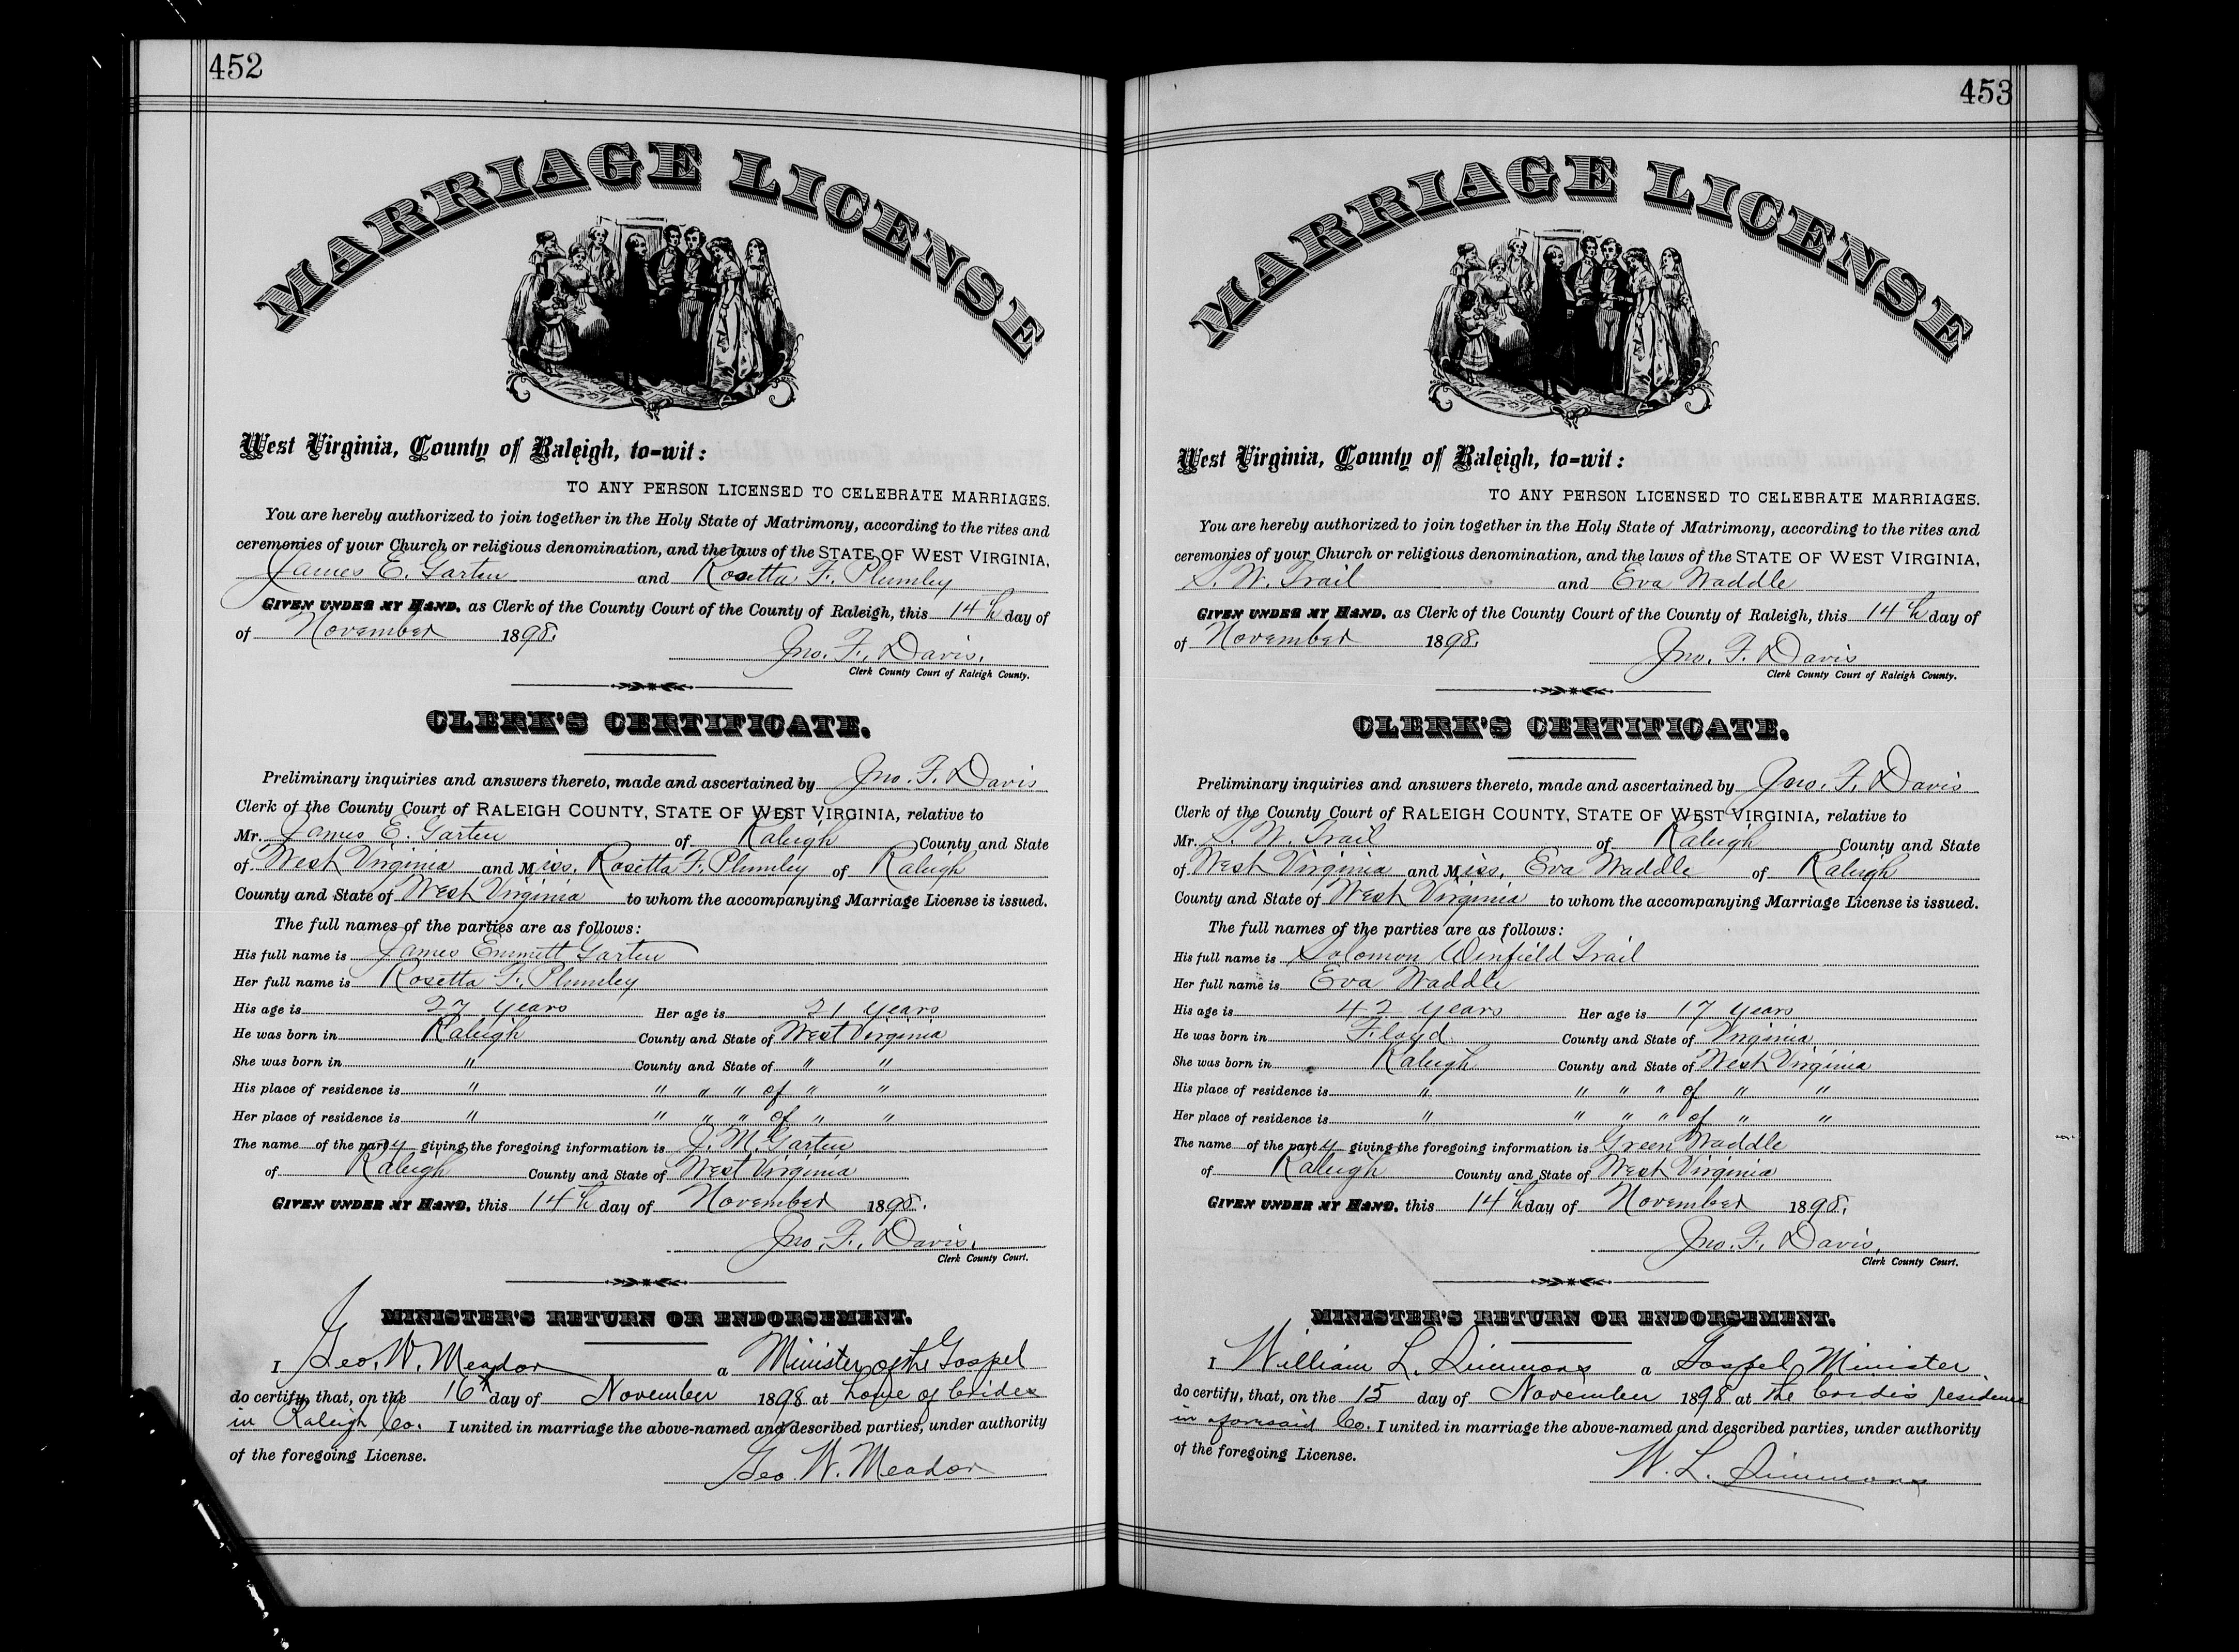 452
MARRIAGE LICENSE
West Virginia, County of Raleigh, to=wit:
TO ANY PERSON LICENSED TO CELEBRATE MARRIAGES.
You are hereby authorized to join together in the Holy State of Matrimony, according to the rites and
ceremonies of your Church or religious denomination, and the laws of the STATE OF WEST VIRGINIA,
James E. Garten and Rosetta F. Plumley
GIVEN UNDER MY HAND, as Clerk of the County Court of the County of Raleigh, this 14th day of
of November 1898.
Jno. F. Davis.
Clerk County Court of Raleigh County.
CLERK'S CERTIFICATE.
Preliminary inquiries and answers thereto, made and ascertained by Jno. F. Davis
Clerk of the County Court of RALEIGH COUNTY, STATE OF WEST VIRGINIA, relative to
Mr. James E. Garten of Raleigh County and State
of West Virginia and Miss. Rosetta F. Plumley of Raleigh
County and State of West Virginia to whom the accompanying Marriage License is issued.
The full names of the parties are as follows:
His full name is James Emmitt Garten
Her full name is Rosetta F. Plumley
His age is 27 years Her age is 21 years
He was born in Raleigh County and State of West Virginia
She was born in " County and State of " "
His place of residence is " " " " of " "
Her place of residence is " " " " of " "
The name of the party giving the foregoing information is J. M. Garten
of Raleigh County and State of West Virginia
GIVEN UNDER MY HAND, this 14th day of November 1898.
Jno. F. Davis.
Clerk County Court.
MINISTER'S RETURN OR ENDORSEMENT.
I Geo. W. Meador a Minister of the Gospel
do certify, that, on the 16th day of November 1898 at home of brides
in Raleigh Co. I united in marriage the above-named and described parties, under authority
of the foregoing License.
Geo. W. Meador
453
MARRIAGE LICENSE
West Virginia, County of Raleigh, to=wit:
TO ANY PERSON LICENSED TO CELEBRATE MARRIAGES.
You are hereby authorized to join together in the Holy State of Matrimony, according to the rites and
ceremonies of your Church or religious denomination, and the laws of the STATE OF WEST VIRGINIA,
S. W. Trail and Eva Waddle
GIVEN UNDER MY HAND, as Clerk of the County Court of the County of Raleigh, this 14th day of
of November 1898.
Jno. F. Davis
Clerk County Court of Raleigh County.
CLERK'S CERTIFICATE.
Preliminary inquiries and answers thereto, made and ascertained by Jno. F. Davis
Clerk of the County Court of RALEIGH COUNTY, STATE OF WEST VIRGINIA, relative to
Mr. S. W. Trail of Raleigh County and State
of West Virginia and Miss. Eva Waddle of Raleigh
County and State of West Virginia to whom the accompanying Marriage License is issued.
The full names of the parties are as follows:
His full name is Solomon Winfield Trail
Her full name is Eva Waddle
His age is 42 years Her age is 17 years
He was born in Floyd County and State of Virginia
She was born in Raleigh County and State of West Virginia
His place of residence is " " " " of " "
Her place of residence is " " " " of " "
The name of the party giving the foregoing information is Green Waddle
of Raleigh County and State of West Virginia
GIVEN UNDER MY HAND, this 14th day of November 1898.
Jno. F. Davis,
Clerk County Court.
MINISTER'S RETURN OR ENDORSEMENT.
I William L. Simmons a Gospel Minister
do certify, that, on the 15 day of November 1898 at the bride's residence
in aforesaid Co. I united in marriage the above-named and described parties, under authority
of the foregoing License.
W. L. Simmons